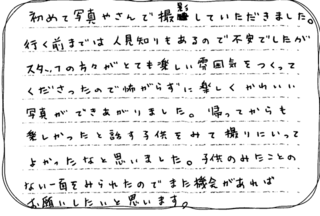 初めて写真やさんで撮影していただきました。
行く前までは人見知りもあるので不安でしたが
スタッフの方々がとても楽しい雰囲気をつくって
くださったので怖がらずに楽しくかわいい
写真ができあがりました。帰ってからも
楽しかったと話す子供をみて撮りにいって
よかったなと思いました。子供のみたことの
ない一面をみられたのでまた機会があれば
お願いしたいと思います。